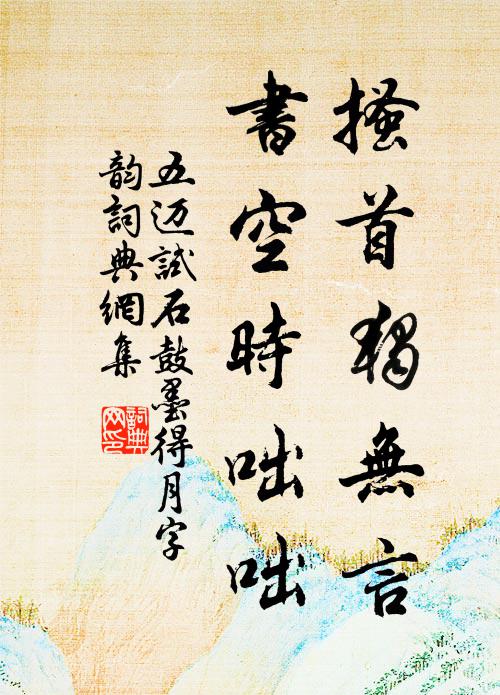 搔首獨無言
書空時咄咄
五迈試石鼓墨得月字
韵詞典網集
詞典網印